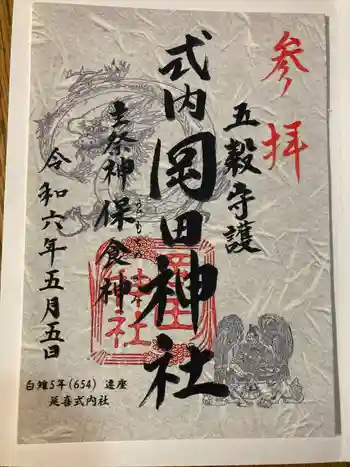 参拝
五穀守護
式内 岡田神社
主祭神 保食神
うけもちのかみ
令和六年五月五日
白雉5年(654) 遷座
延喜式内社